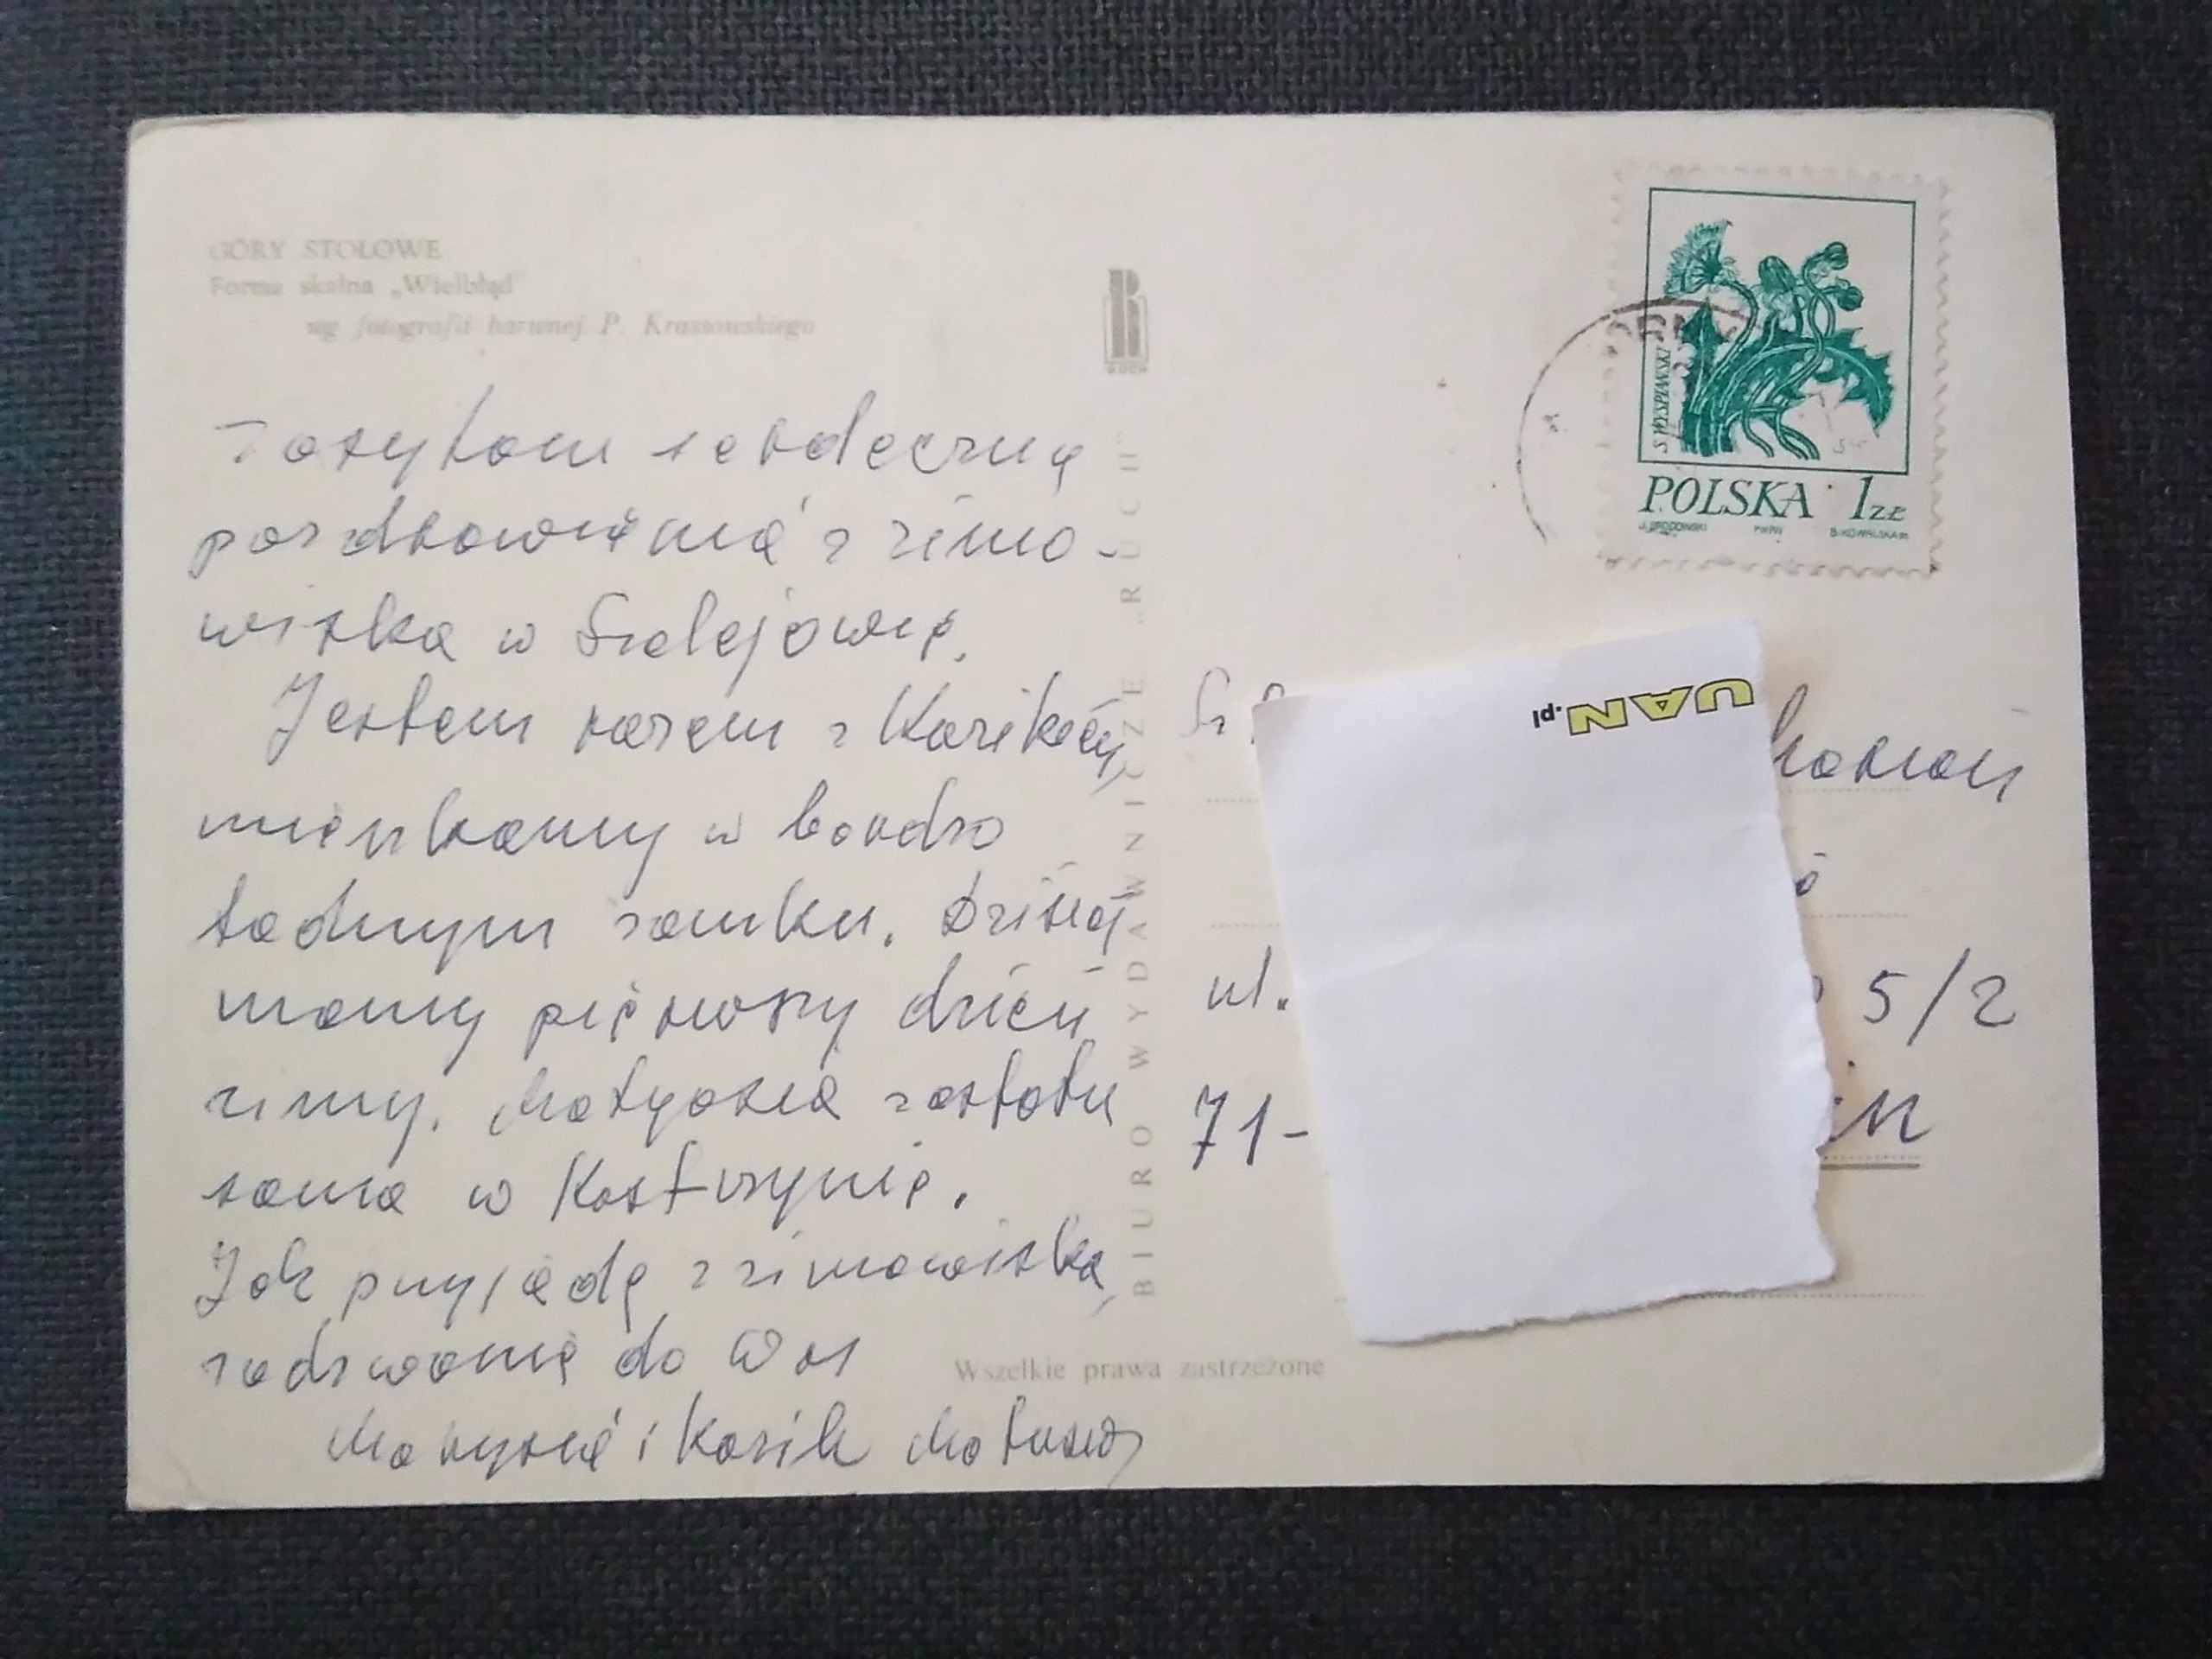 GÓRY STOŁOWE
Forma skalna „Wielbłąd"
wg fotografii barwnej P. Krassowskiego
RUCH
Zasyłam serdeczne
pozdrowienia z zimo-
wiska w Szalejowie.
Jestem razem z Kazikiem,
mieszkamy w bardzo
ładnym zamku. Dzisiaj
mamy pierwszy dzień
zimy. Matyosia została
sama w Kostrzynie.
Jak przyjadę z zimowiska,
zadzwonię do Was
Marysia i Kazik
BIURO WYDAWNICZE „RUCH"
Wszelkie prawa zastrzeżone
S. WYSPIAŃSKI
POLSKA 1ZŁ
PWPW
UAN.pl
Sz
ul. 5/2
71-